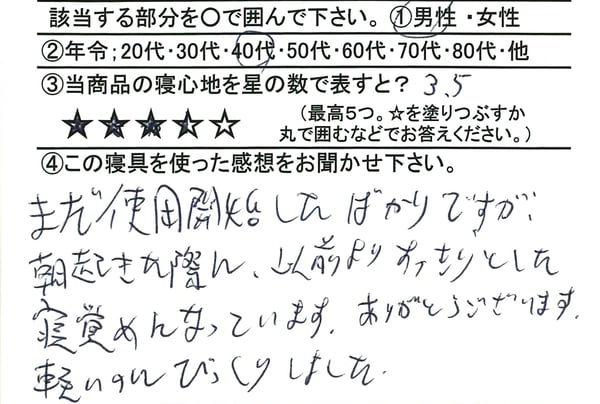 該当する部分を〇で囲んで下さい。①男性・女性
②年令；20代・30代・40代・50代・60代・70代・80代・他
③当商品の寝心地を星の数で表すと？ 3.5
★★★☆☆ （最高5つ。☆を塗りつぶすか
丸で囲むなどでお答えください。）
④この寝具を使った感想をお聞かせ下さい。
まだ使用開始したばかりですが、
朝起きた際に、以前よりすっきりとした
寝覚めになっています。ありがとうございます。
軽いのにびっくりしました。